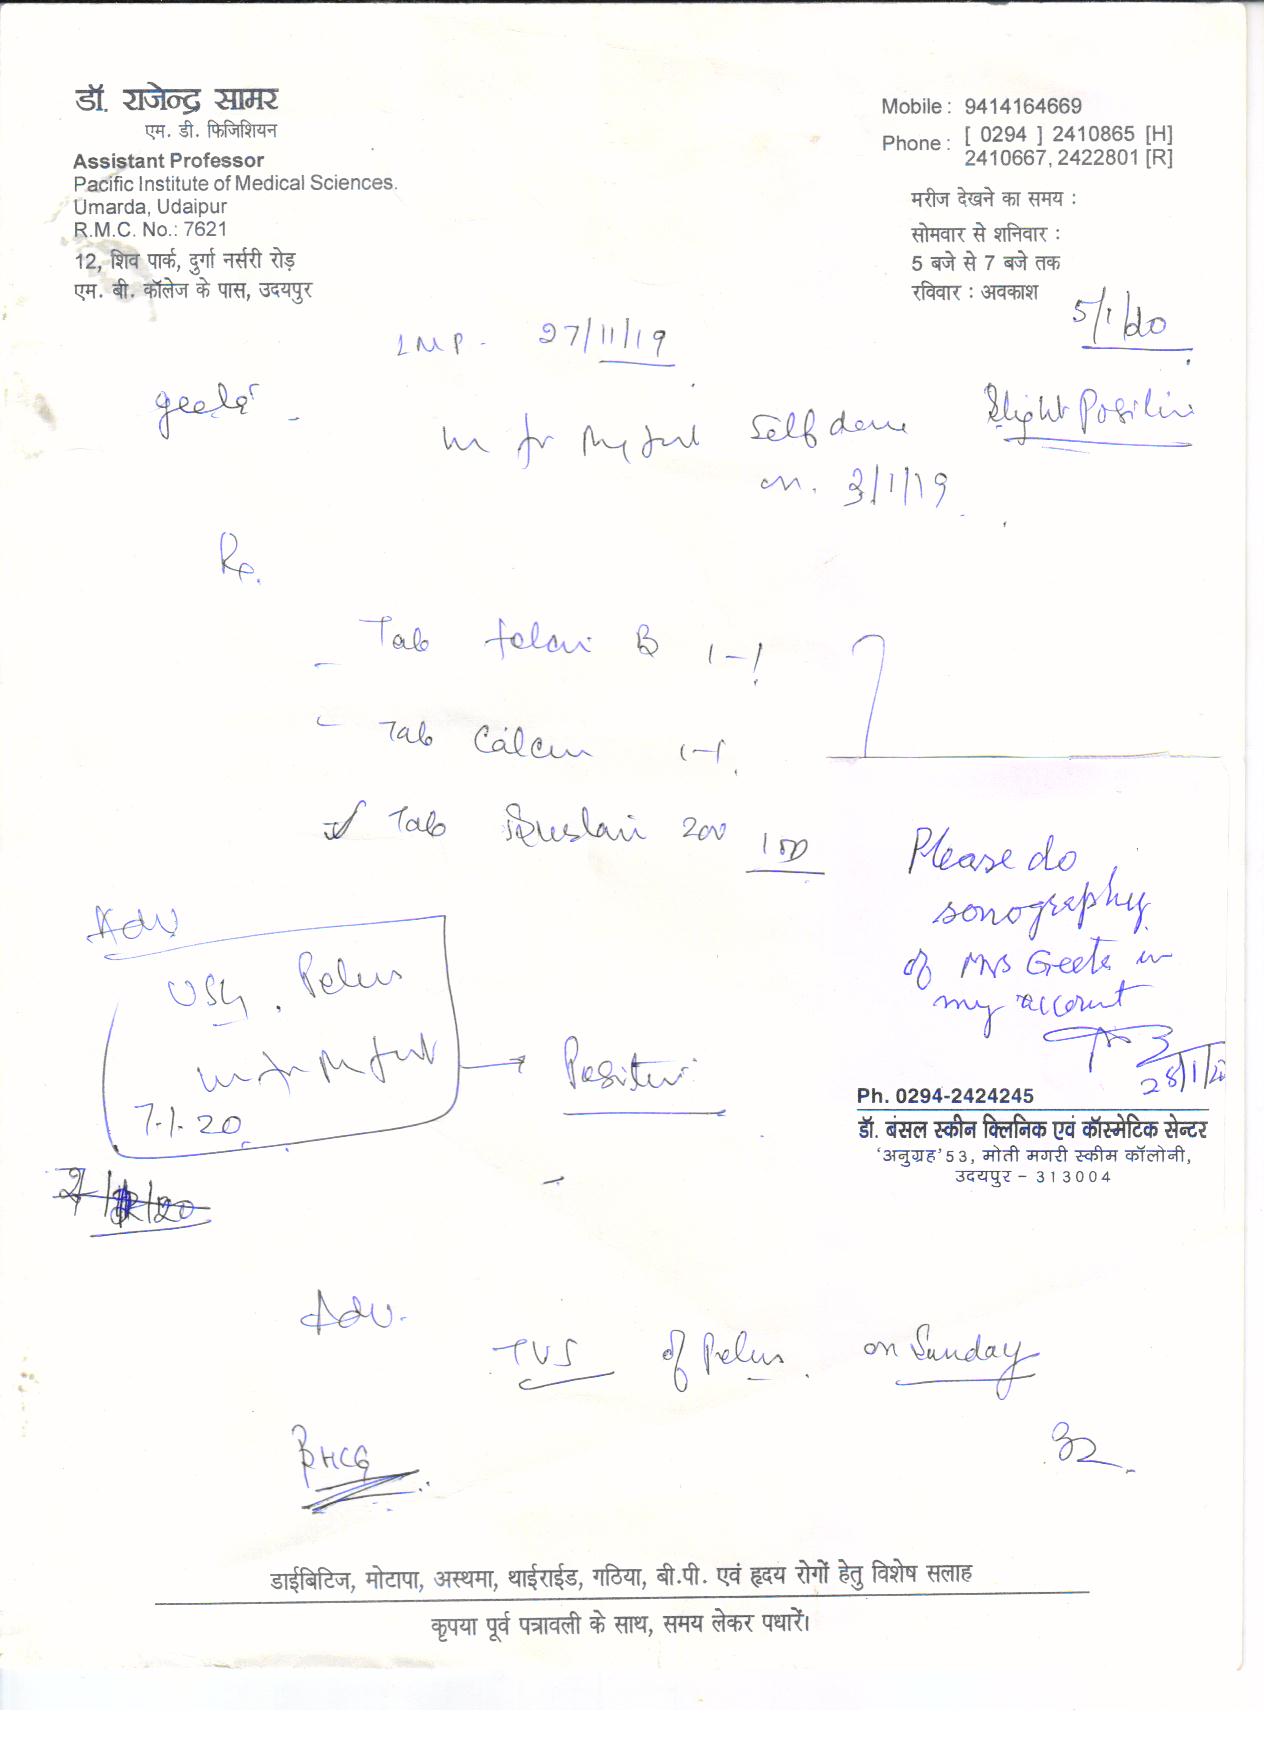 डॉ. राजेन्द्र सामर
एम. डी. फिजिशियन
Assistant Professor
Pacific Institute of Medical Sciences.
Umarda, Udaipur
R.M.C. No.: 7621
12, शिव पार्क, दुर्गा नर्सरी रोड़
एम. बी. कॉलेज के पास, उदयपुर
Mobile : 9414164669
Phone : [ 0294 ] 2410865 [H]
2410667, 2422801 [R]
मरीज देखने का समय :
सोमवार से शनिवार :
5 बजे से 7 बजे तक
रविवार : अवकाश
5/1/20
LMP - 27/11/19
geeta -
Self done Slight Positive
on. 3/1/19
Rx.
Tab B 1-1
Tab 1-1
Tab 200 1 OD
Adv
USG. Pelvis
7.1.20
Positive
Please do
sonography
of Mrs Geeta in
my account
28/1/20
Ph. 0294-2424245
डॉ. बंसल स्कीन क्लिनिक एवं कॉस्मेटिक सेन्टर
'अनुग्रह' 53, मोती मगरी स्कीम कॉलोनी,
उदयपुर - 313004
Adv.
TVS of Pelvis. on Sunday
BHCG
डाईबिटिज, मोटापा, अस्थमा, थाईराईड, गठिया, बी.पी. एवं हृदय रोगों हेतु विशेष सलाह
कृपया पूर्व पत्रावली के साथ, समय लेकर पधारें।